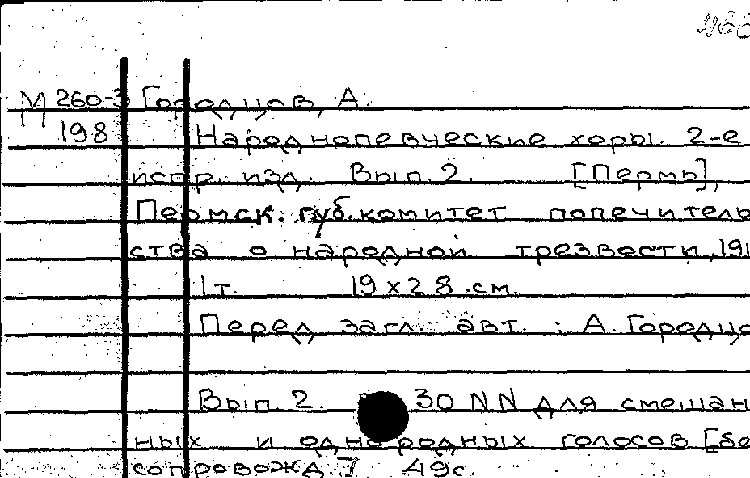 М 260-3 Городцов, А.
198 Народнопевческие хоры. 2-е
испр. изд. Вып. 2. [Пермь],
Пермск. губ. комитет попечитель
ства о народной трезвости, 191
1 т. 19 x 28 см
Перед загл. авт. : А. Городцо
Вып. 2. 30 NN для смешан
ных и однородных голосов [бе
сопровожд.] 49 с.